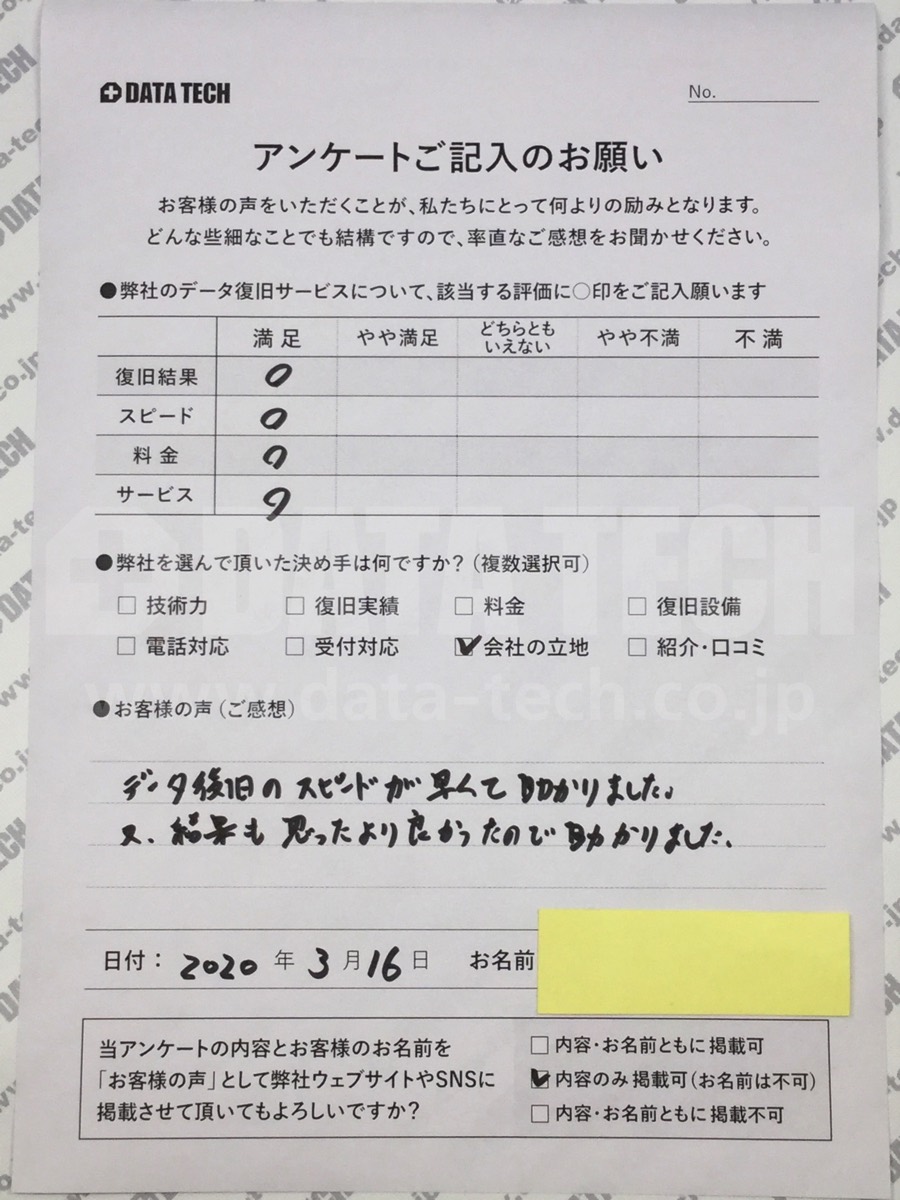 DATA TECH
No.
アンケートご記入のお願い
お客様の声をいただくことが、私たちにとって何よりの励みとなります。
どんな些細なことでも結構ですので、率直なご感想をお聞かせください。
●弊社のデータ復旧サービスについて、該当する評価に○印をご記入願います
満足 やや満足 どちらとも いえない やや不満 不満
復旧結果 ○
スピード ○
料金 ○
サービス ○
DATA TECH
●弊社を選んで頂いた決め手は何ですか？（複数選択可）
□ 技術力 □ 復旧実績 □ 料金 □ 復旧設備
□ 電話対応 □ 受付対応 ☑ 会社の立地 □ 紹介・口コミ
www.data-tech.co.jp
●お客様の声（ご感想）
データ復旧のスピードが早くて助かりました。
又、結果も思ったより良かったので助かりました。
日付： 2020 年 3 月 16 日 お名前
当アンケートの内容とお客様のお名前を
「お客様の声」として弊社ウェブサイトやSNSに
掲載させて頂いてもよろしいですか？
□ 内容・お名前ともに掲載可
☑ 内容のみ掲載可（お名前は不可）
□ 内容・お名前ともに掲載不可